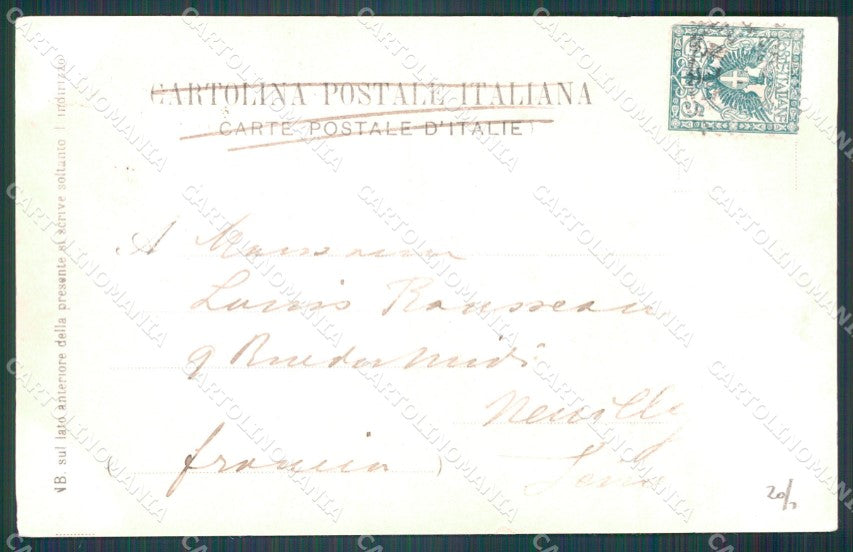 CARTOLINA POSTALE ITALIANA
CARTE POSTALE D'ITALIE
POSTE ITALIANE
5
NB. sul lato anteriore della presente si scrive soltanto l'indirizzo
A
Louis Rousseau
9 Rue du Midi
Neuilly
(francia)
20/
CARTOLINOMANIA